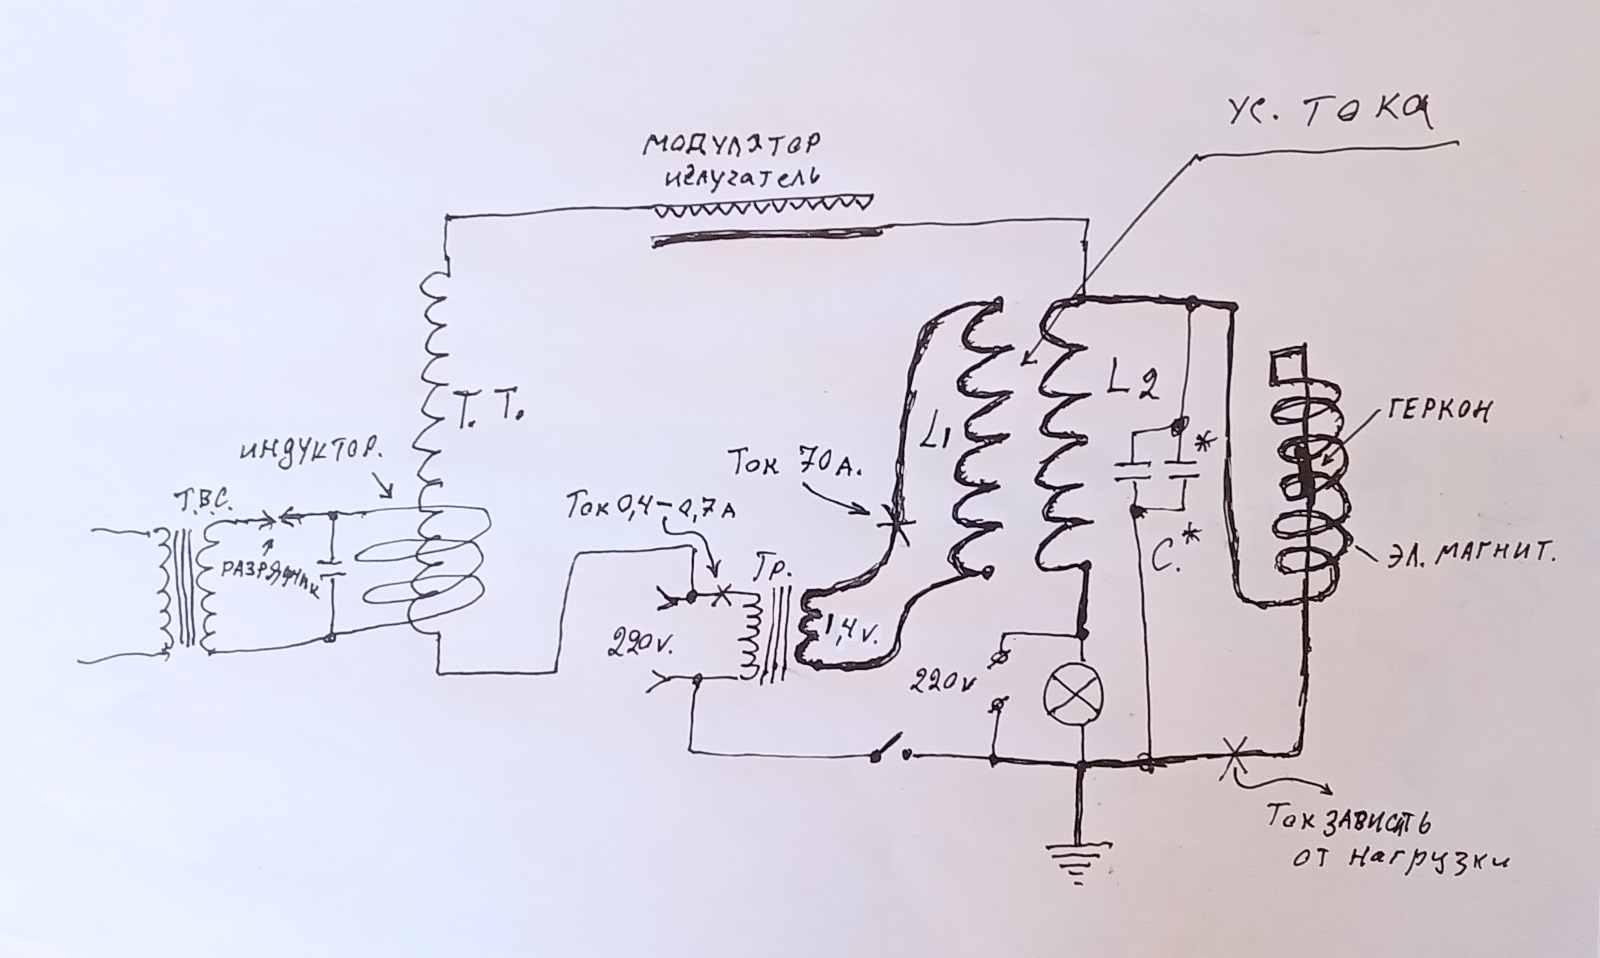 УС. ТОКА
МОДУЛЯТОР
излучатель
Т. Т.
L1
L2
ГЕРКОН
ИНДУКТОР.
Ток 70А.
*
Т.В.С.
Ток 0,4-0,7А
РАЗРЯДНИК
C.*
ЭЛ. МАГНИТ.
Тр.
220v.
1,4v.
220v
Ток ЗАВИСИТЬ
от нагрузки